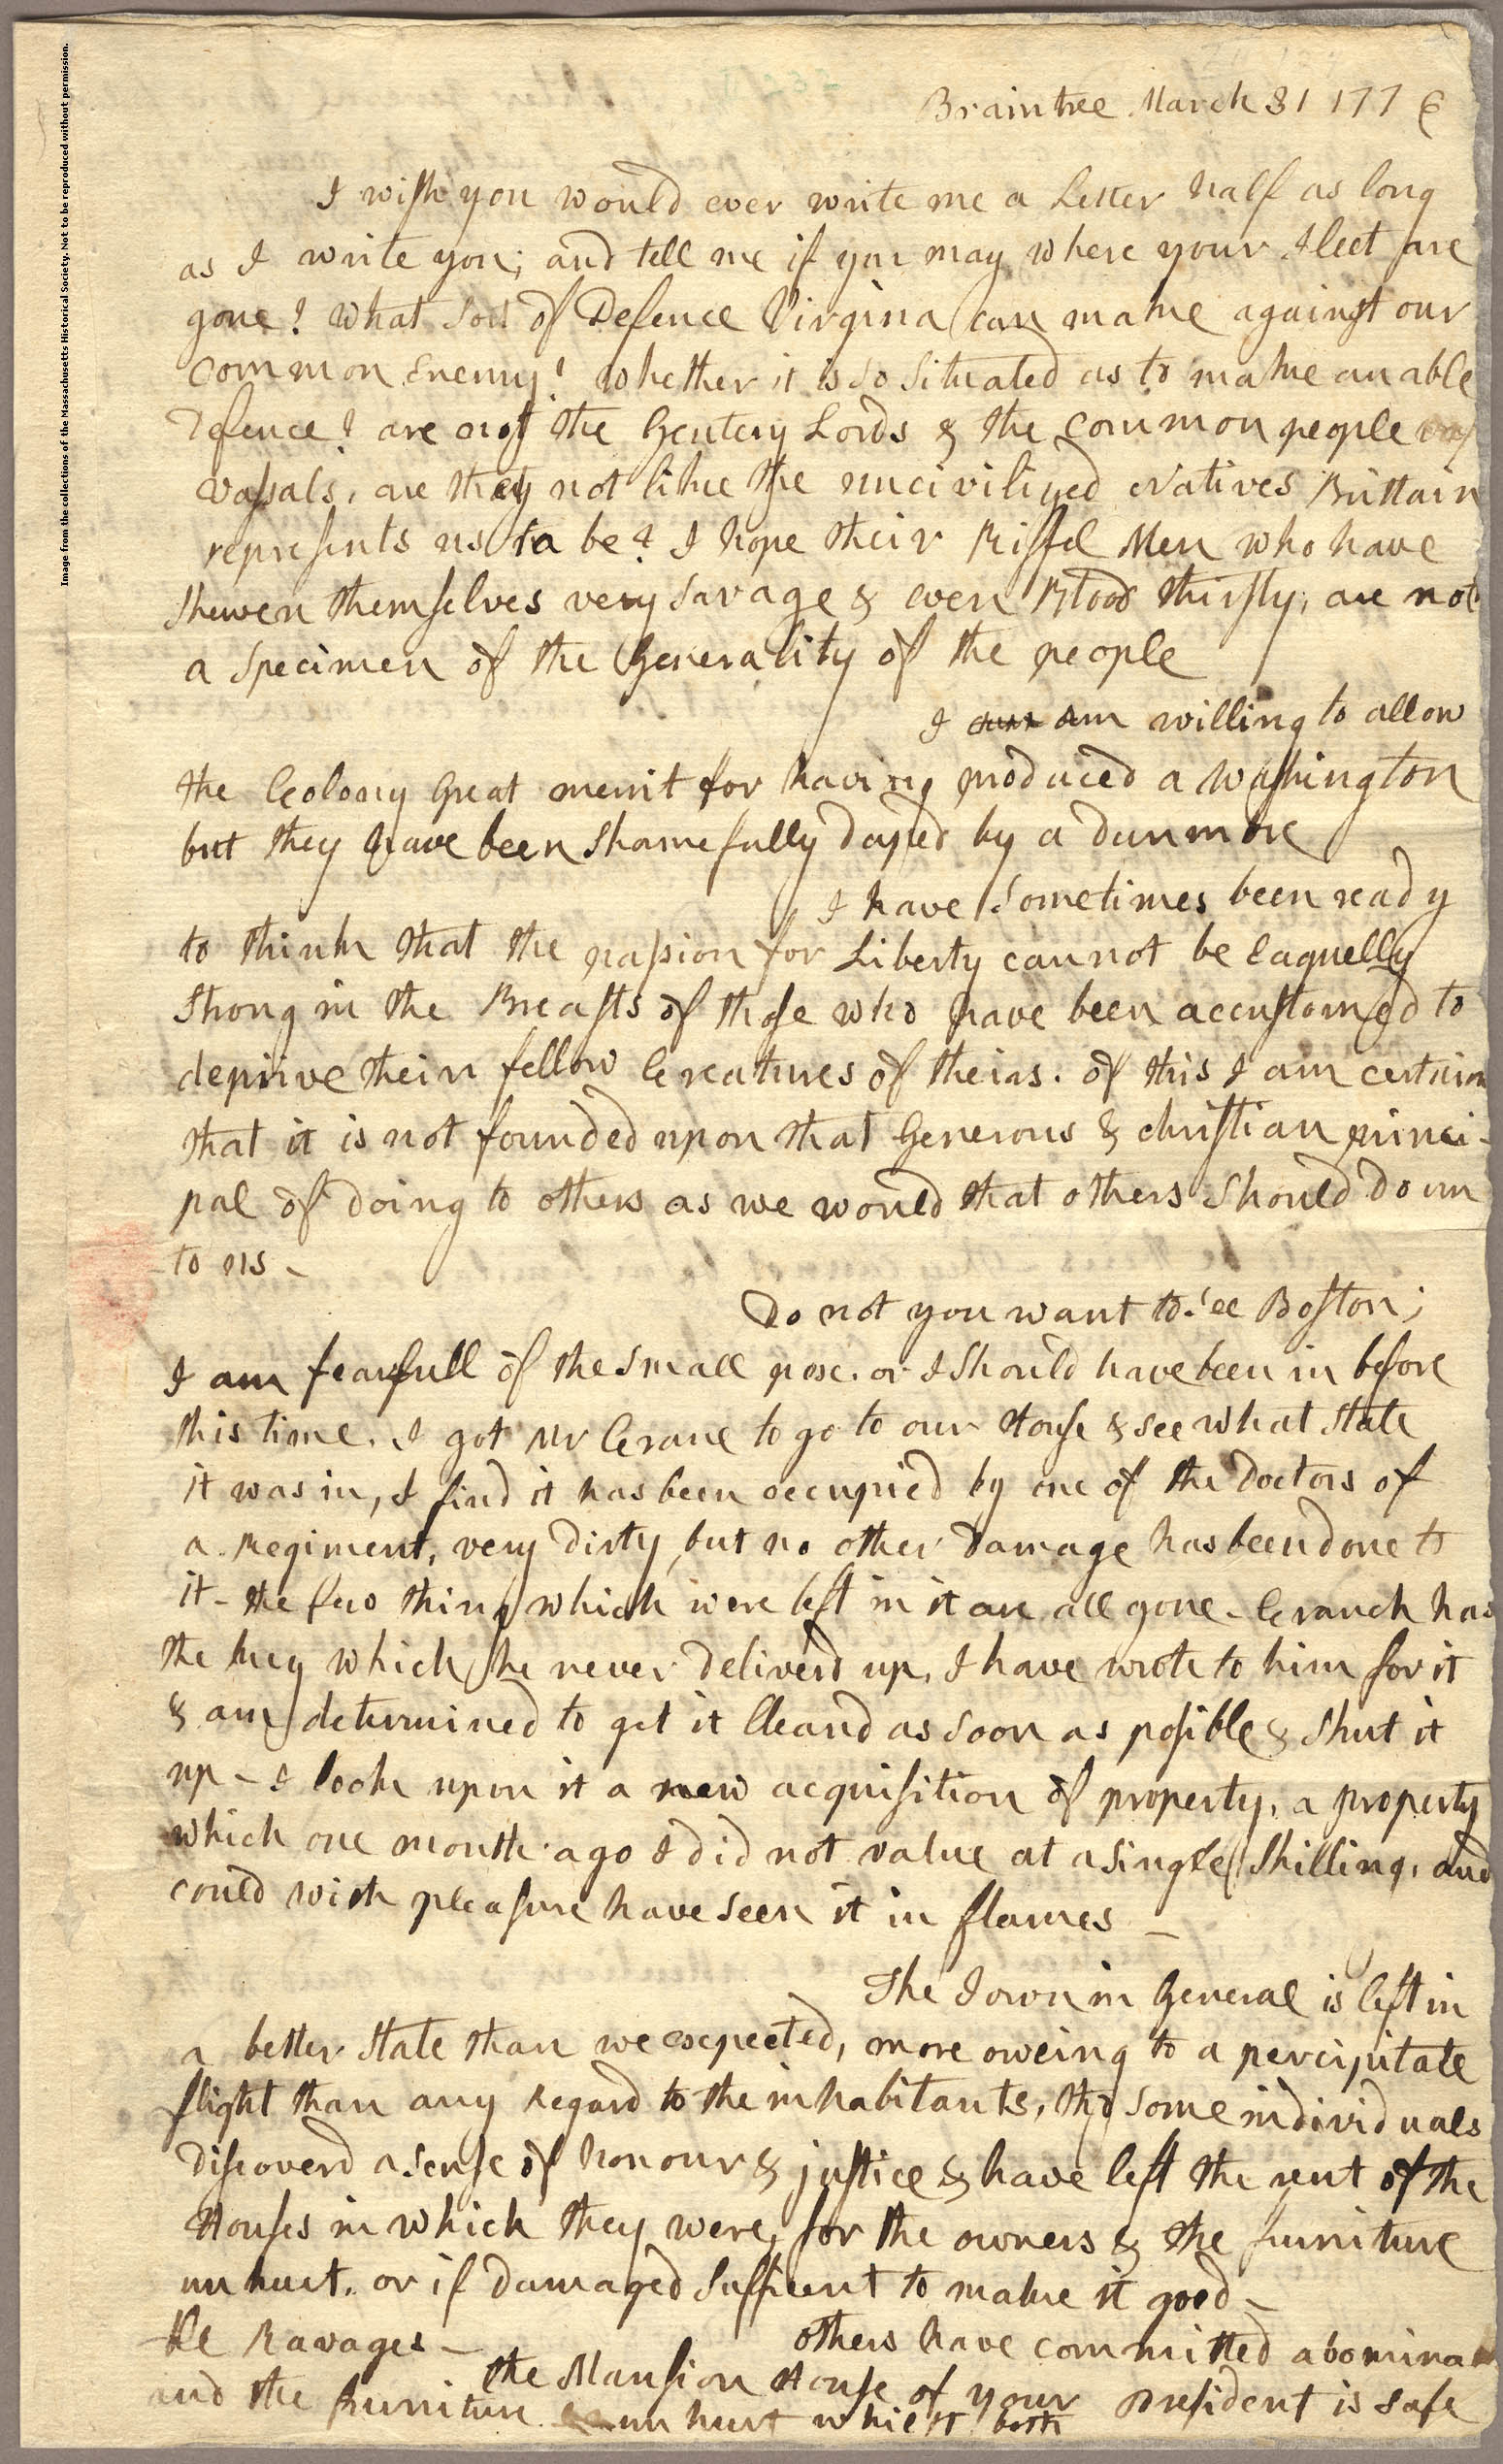 Image from the collections of the Massachusetts Historical Society. Not to be reproduced without permission.
Braintree March 31 1776
I wish you would ever write me a Letter half as long
as I write you; and tell me if you may where your Fleet are
gone? What sort of Defence Virginia can make against our
common Enemy? Whether it is so situated as to make an able
Defence? are not the Gentery Lords & the common people
vassals, are they not like the uncivilized Natives Brittain
represents us to be? I hope their Riffel Men who have
shewen themselves very savage & even Blood thirsty; are not
a specimen of the Generality of the people
I am willing to allow
the Colony great merrit for having produced a Washington
but they have been shamefully duped by a Dunmore
I have sometimes been ready
to think that the passion for Liberty cannot be Eaquelly
strong in the Breasts of those who have been accustomed to
deprive their fellow Creatures of theirs. of this I am certain
that it is not founded upon that Generous & christian princi-
pal of doing to others as we would that others should do un
to us -
Do not you want to see Boston;
I am fearfull of the small pox. or I should have been in before
this time. I got Mr Crane to go to our House & see what state
it was in, I find it has been occupied by one of the Doctors of
a Regiment, very dirty, but no other damage has been done to
it - the few things which were left in it are all gone - Cranch has
the key which he never deliverd up, I have wrote to him for it
& am determined to get it Cleand as soon as posible & shut it
up - I look upon it a new acquisition of property, a property
which one month ago I did not value at a single Shilling, and
could with pleasure have seen it in flames -
The Town in General is left in
a better state than we expected, more oweing to a percipitate
flight than any Regard to the inhabitants, tho some individuals
discoverd a sense of honour & justice & have left the rent of the
Houses in which they were, for the owners & the furniture
unhurt. or if damaged sufficent to make it good -
others have committed abomina
ble Ravages -
the Mansion House of your President is safe
and the furniture unhurt whilst both